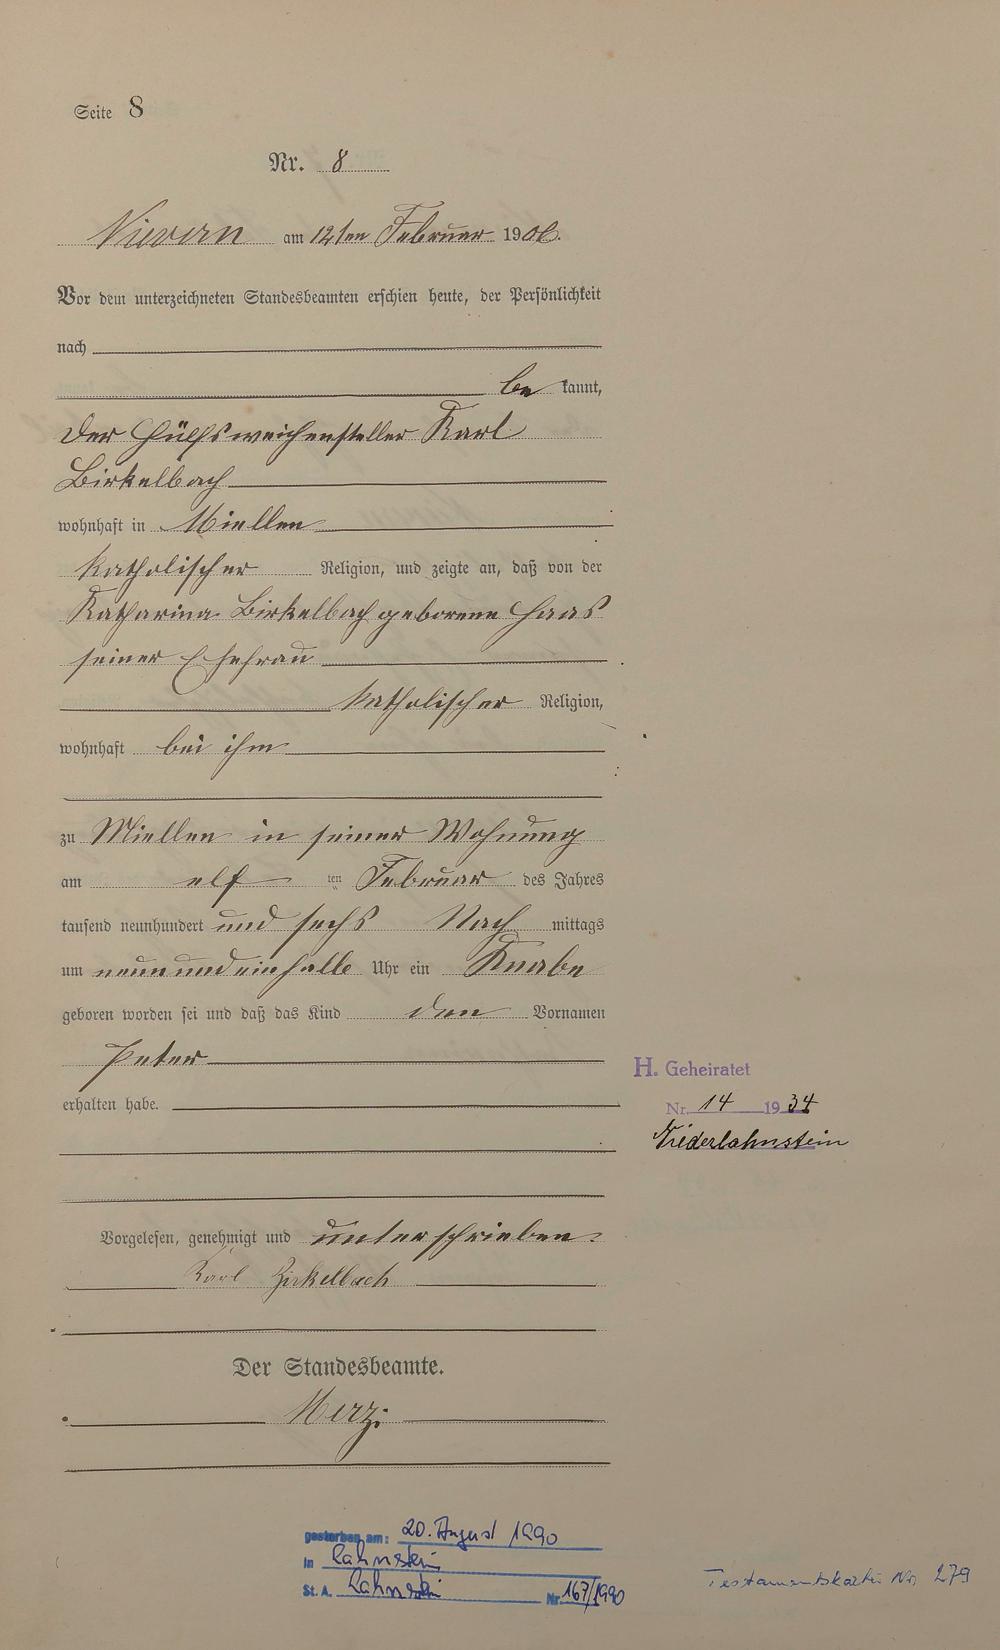 Seite 8
Nr. 8
Nievern am 12ten Februar 1906.
Vor dem unterzeichneten Standesbeamten erschien heute, der Persönlichkeit
nach
be kannt,
der Hülfsweichensteller Karl
Birkelbach
wohnhaft in Miellen
katholischer Religion, und zeigte an, daß von der
Katharina Birkelbach geborene Haas
seiner Ehefrau
katholischer Religion,
wohnhaft bei ihm
zu Miellen in seiner Wohnung
am elf ten Februar des Jahres
tausend neunhundert und sechs Nach mittags
um neunundeinhalb Uhr ein Knabe
geboren worden sei und daß das Kind den Vornamen
Peter
H. Geheiratet
erhalten habe.
Nr. 14 1934
Niederlahnstein
Vorgelesen, genehmigt und unterschrieben.
Karl Birkelbach
Der Standesbeamte.
Merz.
gestorben am: 20. August 1990
in Lahnstein
St. A. Lahnstein Nr. 167/1990
Testamentskartei Nr. 279